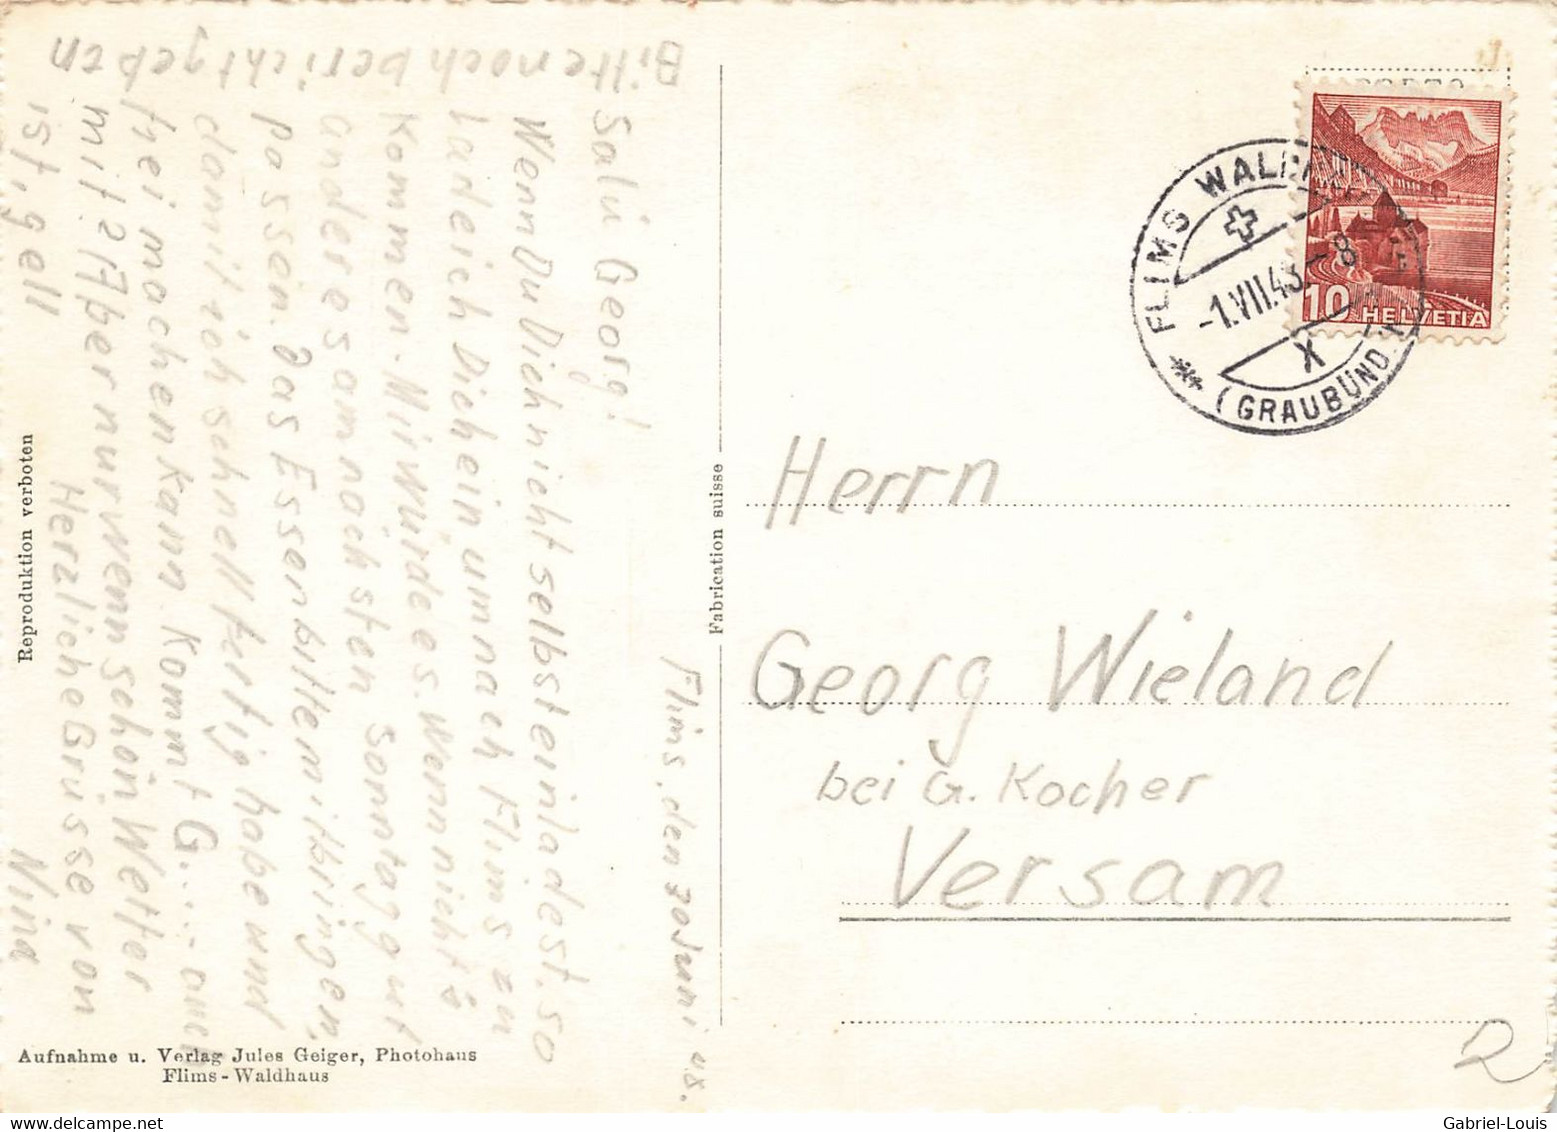 Flims, den 30 Juni
Salü Georg!
Wenn Du Dich nicht selbst einladest. so
lade ich Dich ein um nach Flims zu
Kommen. Mir würde es. wenn nichts
anderes am nächsten Sonntag gut
passen. das Essen bitte mitbringen,
damit ich schnell fertig habe und
frei machen kann Kommt G..... auch
mit? Aber nur wenn schön Wetter
ist, gell
Herzliche Grüsse von
Nina
Bitte noch bericht geben
Reproduktion verboten
Fabrication suisse
Aufnahme u. Verlag Jules Geiger, Photohaus
Flims - Waldhaus
FLIMS
(GRAUBÜND.)
-1.VII.43.-8
X
10 HELVETIA
Herrn
Georg Wieland
bei G. Kocher
Versam
Gabriel-Louis